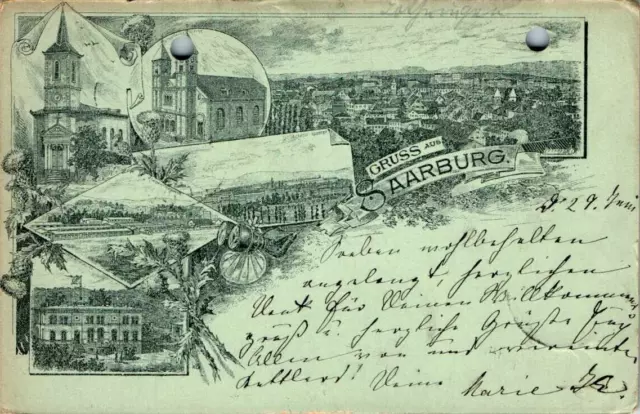 Lothringen
GRUSS AUS
SAARBURG.
D. 29. Juni
Soeben wohlbehalten
angelangt, herzlichen
Dank für Deinen Willkomms
gruß u. herzliche Grüße Euch
Allen von und
Deine Marie